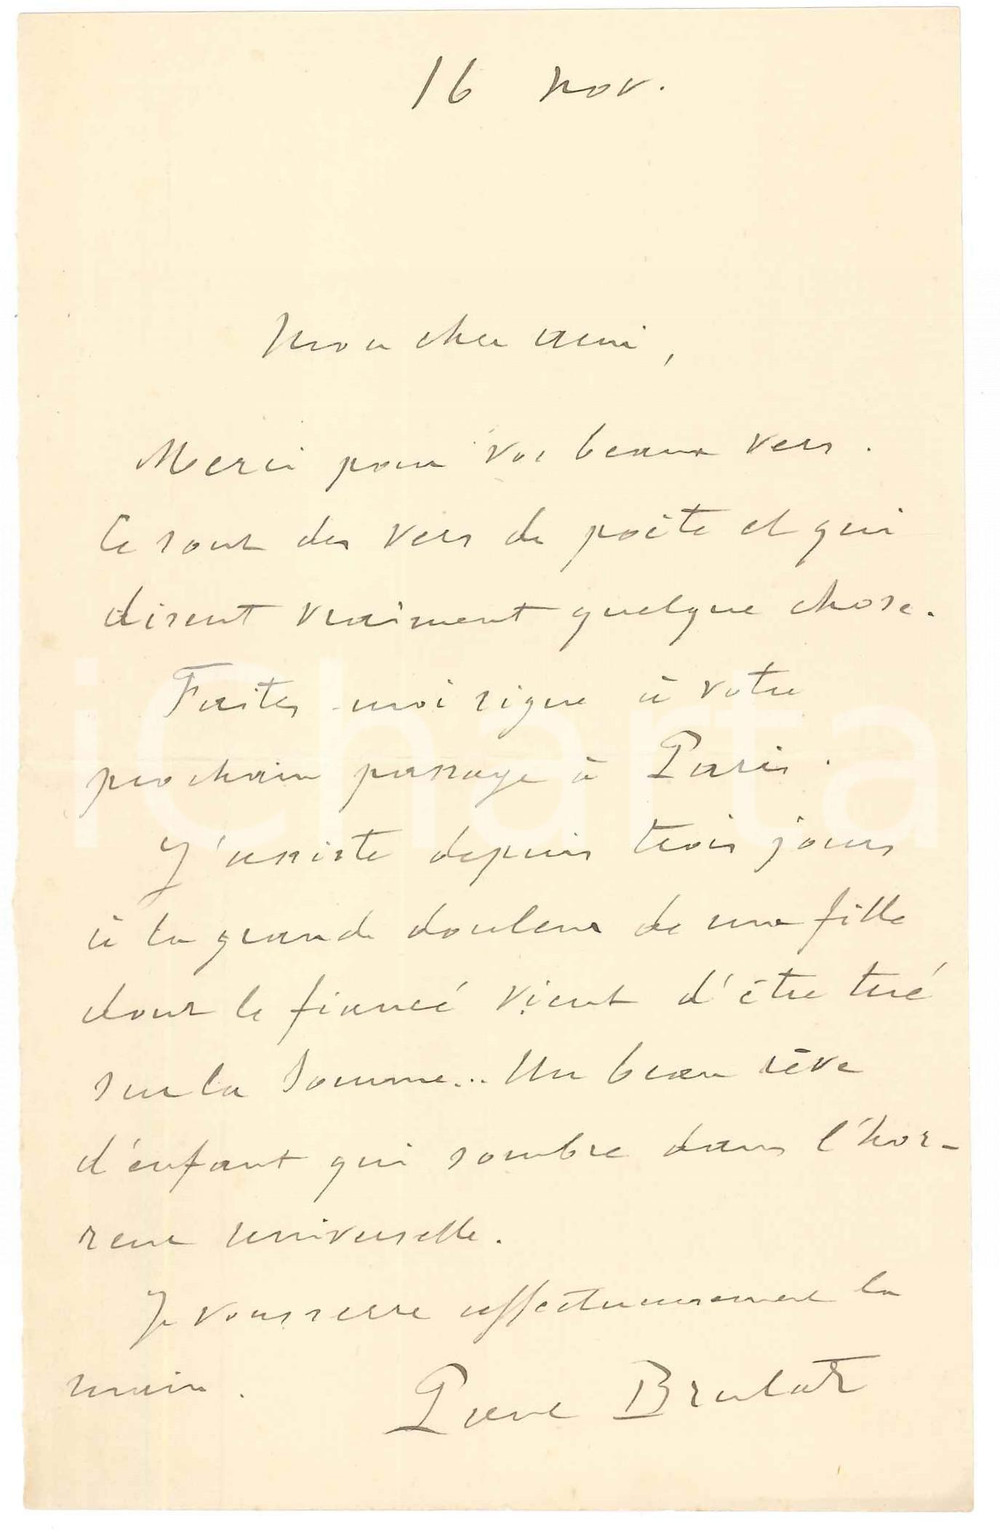 16 nov.
Mon cher ami,
Merci pour vos beaux vers.
Ce sont des vers de poète et qui
disent vraiment quelque chose.
Faites-moi signe à votre
prochain passage à Paris.
J'assiste depuis trois jours
à la grande douleur de une fille
dont le fiancé vient d'être tué
sur la Somme... Un beau rêve
d'enfant qui sombre dans l'hor-
reur universelle.
Je vous serre affectueusement la
main.
Paul Brulat
iCharta